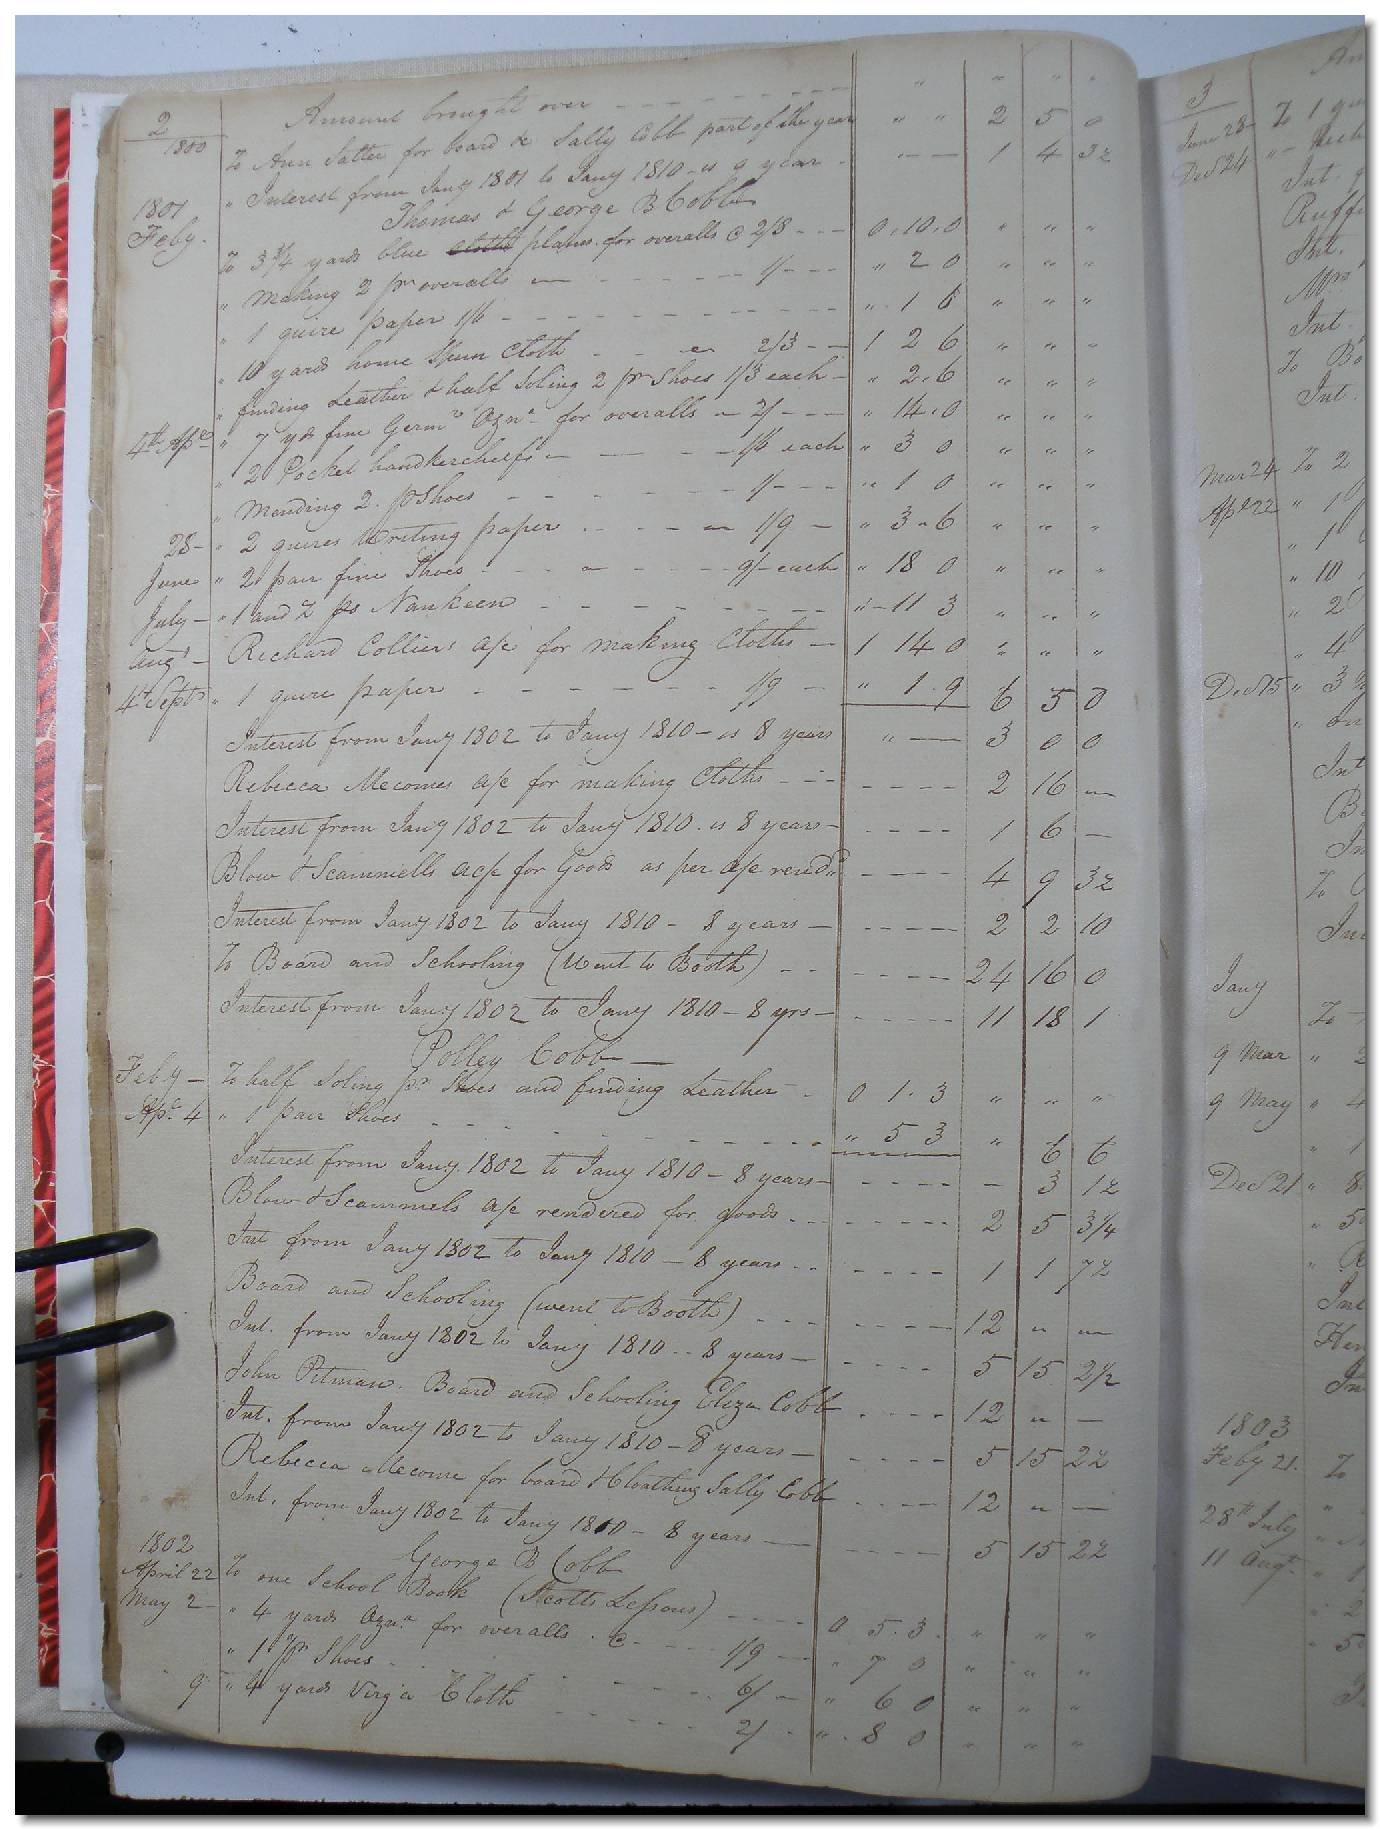 2 Amount brought over - - - - - - - - - " " " "
1800 To Ann Salter for board &c Sally Cobb part of the year " " 2 5 0
" Interest from Jany 1801 to Jany 1810 - is 9 year - " — 1 4 3½
1801 Thomas & George B Cobb
Feby. To 3¾ yards blue plains for overalls @ 2/8 - - - 0.10.0 " " "
" making 2 pr overalls — - - - - 1/- - - " 2 0 " " "
" 1 quire paper 1/6 - - - - - - - - - - " . 1 6 " " "
" 10 yards home spun Cloth - - @ 2/3 - - 1 2 6 " " "
" finding Leather & half soling 2 pr Shoes 1/3 each - " 2.6 " " "
4th Apl " 7 yds fine Germn Ozna for overalls - 2/ - - - " 14.0 " " "
" 2 Pocket handkercheifs - — - 1/6 each " 3 0 " " "
" mending 2 pr Shoes - - - - - - - 1/- - - " 1 0 " " "
28 - " 2 quires Writing paper - - - - 1/9 - " 3.6 " " "
June " 2 pair fine Shoes - - - - - - 9/- each " 18 0 " " "
July - " 1 and ½ ps Nankeen - - - - - - - - " - 11 3 " " "
Augt - Richard Colliers a/c for making Cloths — 1 14 0 " " "
4th Septr " 1 quire paper - - - - - - - 1/9 - " 1.9 6 5 0
Interest from Jany 1802 to Jany 1810 - is 8 years " — 3 0 0
Rebecca Mecomes a/c for making Cloths - - - - - - - 2 16 —
Interest from Jany 1802 to Jany 1810 - is 8 years - - - - - 1 6 —
Blow & Scammells acp for Goods as per a/c rendd - - - - 4 9 3½
Interest from Jany 1802 to Jany 1810 - 8 years - - - - - - 2 2 10
To Board and Schooling (Went to Booth) - - - - - - 24 16 0
Interest from Jany 1802 to Jany 1810 - 8 yrs - - - - - 11 18 1
Polley Cobb —
Feby - To half Soling pr Shoes and finding Leather - 0 1.3 " " "
Apl. 4 " 1 pair Shoes - - - - - - - - - - " 5 3 " 6 6
Interest from Jany 1802 to Jany 1810 - 8 years - - - - - - 3 1½
Blow & Scammels a/c rendered for goods - - - - - - - 2 5 3¼
Int from Jany 1802 to Jany 1810 - 8 years - - - - - - 1 1 7½
Board and Schooling (went to Booth) - - - - - - - - 12 " —
Int. from Jany 1802 to Jany 1810 - - 8 years - - - - - 5 15 2½
John Pitman. Board and Schooling Eliza Cobb - - - - 12 " —
Int. from Jany 1802 to Jany 1810 - 8 years - - - - - 5 15 2½
Rebecca Mecome for board & Cloathing Sally Cobb - - - - 12 " —
Int. from Jany 1802 to Jany 1810 - 8 years - - - - - 5 15 2½
1802 George B Cobb
April 22 To one School Book (Scotts Lessons) - - - - 0 5.3. " " "
May 2 - " 4 yards Ozna for overalls. @ - - 1/9 - - " 7 0 " " "
" 1 pr Shoes - - - - - - 6/ - " 6 0 " " "
9 " 4 yards Virga Cloth - - - - - - 2/ - " . 8 0 " " "
3
June 28 To 1
Decr 24 "
Int.
Int.
Int.
To
Int.
Mar 24 To 2
Apl 22 " 1
" 1
" 10
" 2
" 4
Decr 15 " 3
"
Int
To
Jany To
9 Mar " 2
9 May " 4
" 1
Decr 21 " 8
" 50
"
Int
1803
Feby 21. To
"
28th July "
11 Augt. " 1
" 2
" 50